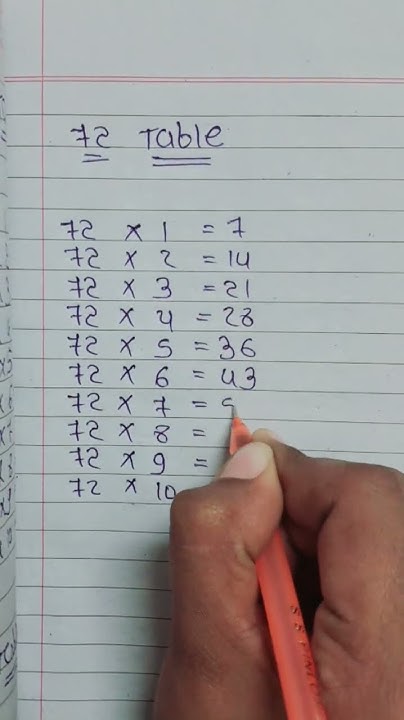 72 Table
72 × 1 = 7
72 × 2 = 14
72 × 3 = 21
72 × 4 = 28
72 × 5 = 36
72 × 6 = 43
72 × 7 =
72 × 8 =
72 × 9 =
72 × 10